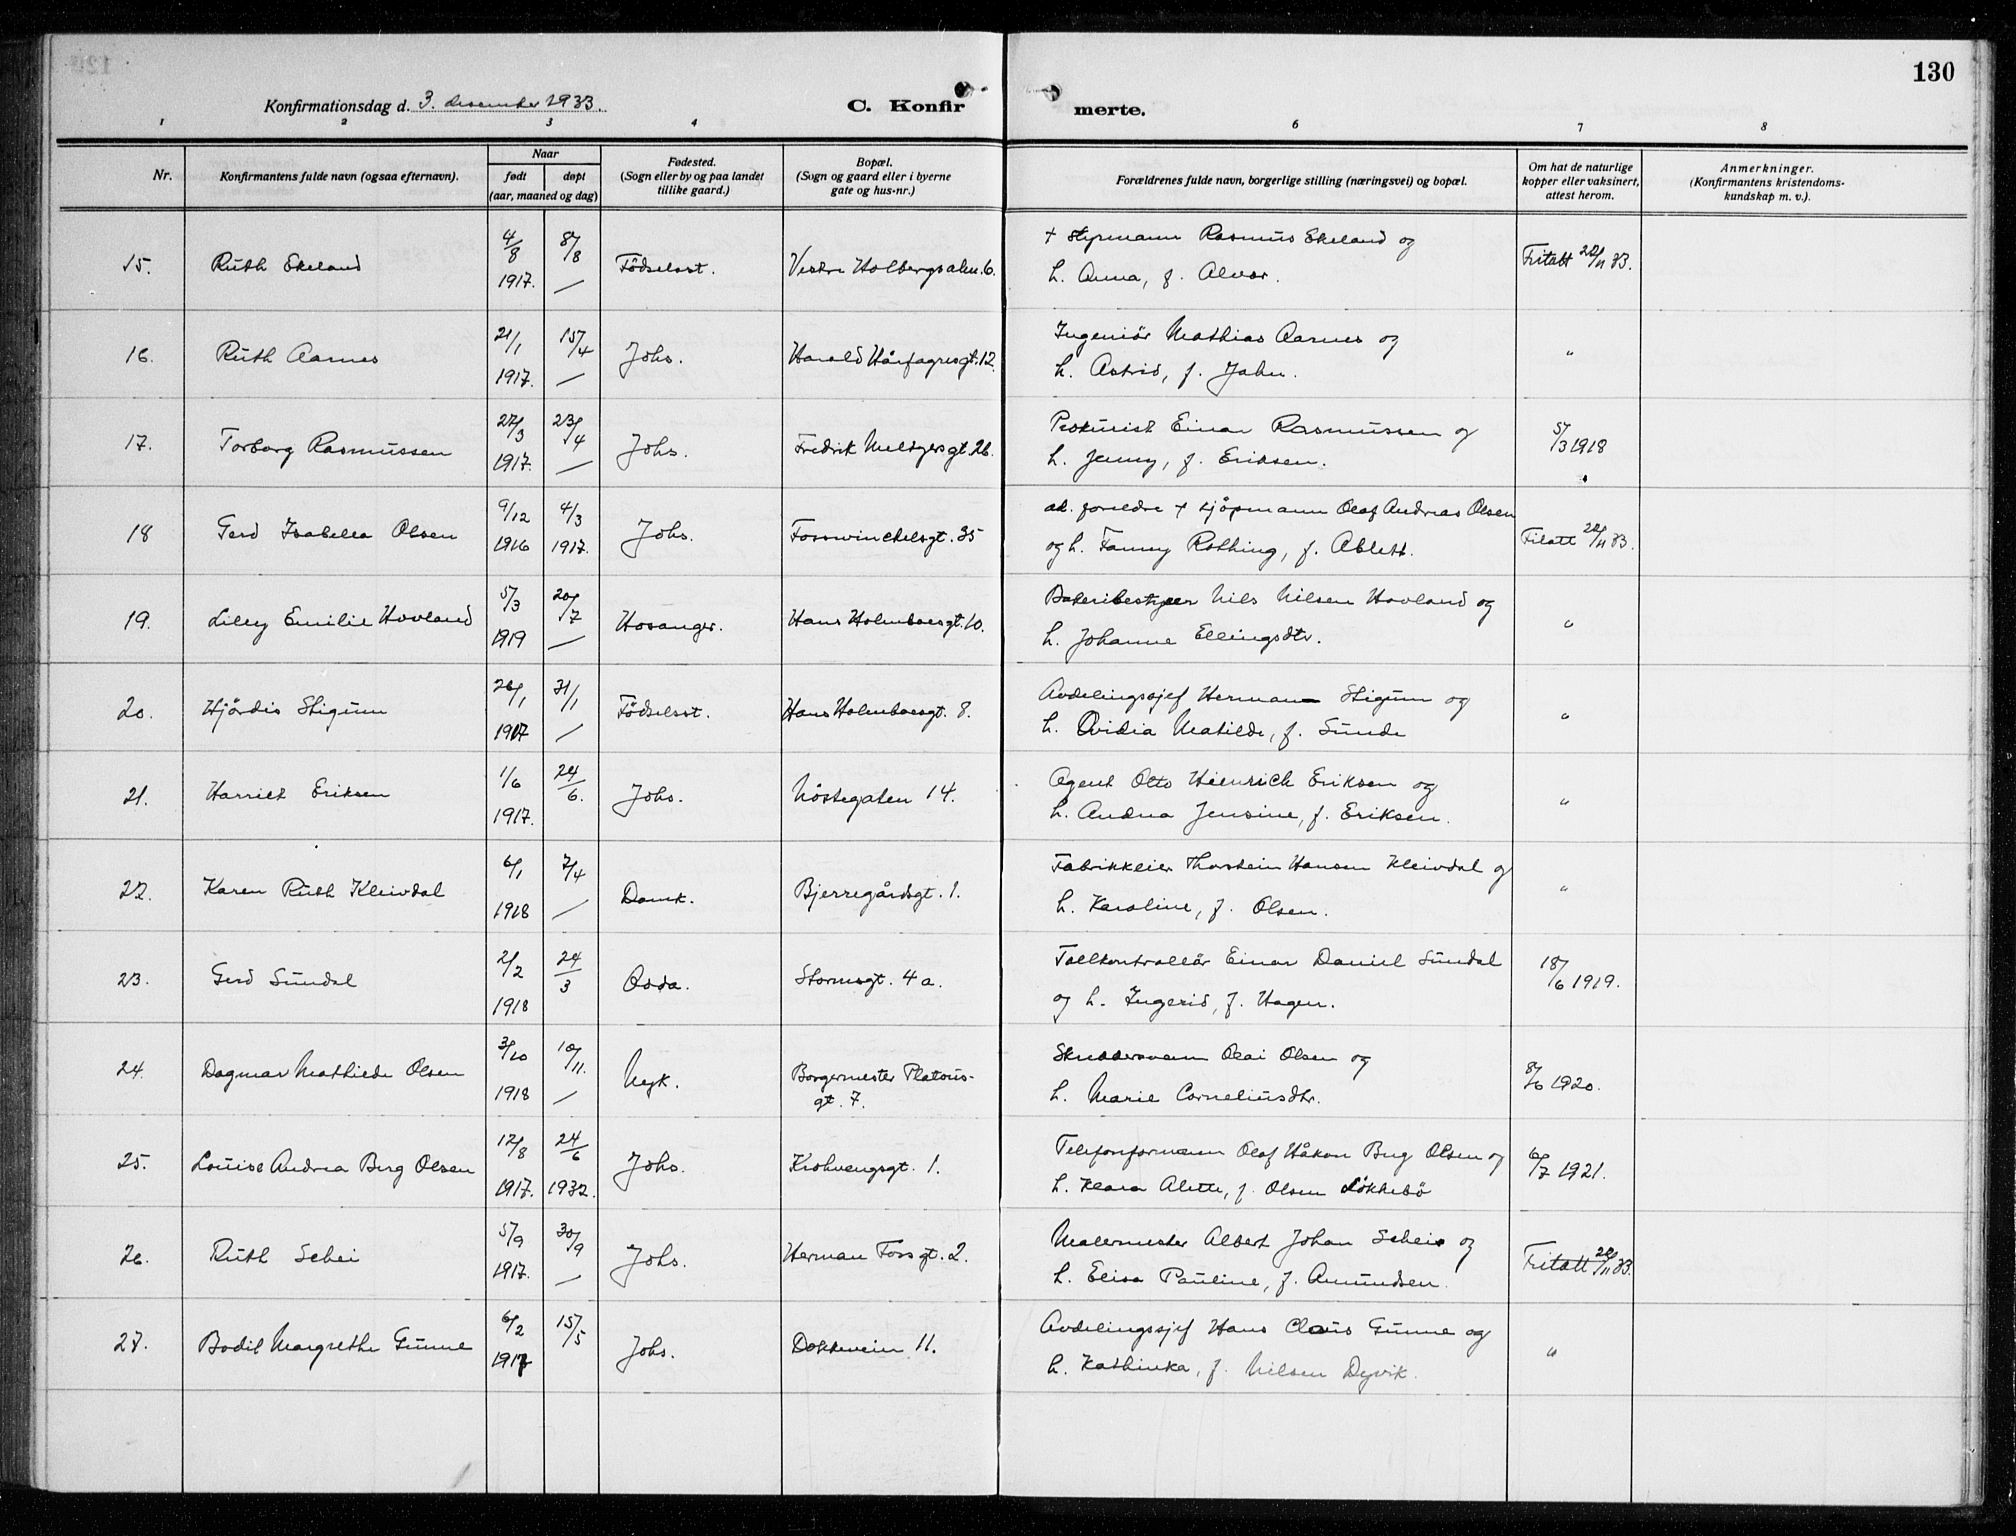 130
Konfirmationsdag d. 3. desember 1933.
C. Konfir
merte.
1 2 3 4 6 7 8
Nr.
Konfirmantens fulde navn (ogsaa efternavn).
Naar
født døpt
(aar, maaned og dag)
Fødested.
(Sogn eller by og paa landet
tillike gaard.)
Bopæl.
(Sogn og gaard eller i byerne
gate og hus-nr.)
Forældrenes fulde navn, borgerlige stilling (næringsvei) og bopæl.
Om hat de naturlige
kopper eller vaksinert,
attest herom.
Anmerkninger.
(Konfirmantens kristendoms-
kundskap m. v.).
15. Ruth Ekeland 4/8 1917. 8/8 — Födselsst. Vestre Holbergsalm. 6. + Styrmann Rasmus Ekeland og
h. Anna, f. Alver. Fritatt 22/11 33.
16. Ruth Aarnes 21/1 1917. 15/4 — Johs. Harald Hårfagresgt. 12. Ingeniör Mathias Aarnes og
h. Astrid, f. Jahn. "
17. Torborg Rasmussen 27/3 1917. 23/4 — Johs. Fredrik Meltzersgt. 26. Prokurist Einar Rasmussen og
h. Jenny, f. Eriksen. 5/3 1918
18 Gerd Isabella Olsen 9/12 1916 4/3 1917. Johs. Fosswinckelsgt. 35 ad. foreldre + sjöpmann Olaf Andreas Olsen
og h. Fanny Rothing, f. Ablett. Fritatt 22/11 33.
19. Lilly Emilie Hovland 5/3 1919 20/7 — Hosanger. Hans Holmboesgt. 10. Bakeribestyrer Nils Nilsen Hovland og
h. Johanne Ellingsdtr. "
20. Hjördis Stigum 26/1 1917 31/1 — Födselsst. Hans Holmboesgt. 8. Avdelingssjef Herman Stigum og
h. Ovidia Matilde, f. Sunde "
21. Harriet Eriksen 1/6 1917. 24/6. Johs. Nöstegaten 14. Agent Otto Heinrich Eriksen og
h. Andrea Jensine, f. Eriksen. "
22. Karen Ruth Kleivdal 6/1 1918 7/4 — Domk. Bjerregårdsgt. 1. Fabrikkeier Thorstein Hansen Kleivdal og
h. Karoline, f. Olsen. "
23. Gerd Sundal 2/2 1918 24/3 Odda. Stormsgt. 4 a. Tollkontrollör Einar Daniel Sundal
og h. Ingerid, f. Hagen. 18/6 1919.
24. Dagmar Mathilde Olsen 3/10 1918 10/11. — Nyk. Borgermester Platous-
gt. 7. Skreddersvenn Olai Olsen og
h. Marie Corneliusdtr. 8/6 1920.
25. Louise Andrea Berg Olsen 12/8 1917. 24/6 1932. Johs. Krohnengsgt. 1. Telefonformann Olaf Håkon Berg Olsen og
h. Klara Alette, f. Olsen Lökkebö 6/7 1921.
26. Ruth Schei 5/9 1917. 30/9 — Johs. Herman Fossgt. 2. Malermester Albert Johan Schei og
h. Elisa Pauline, f. Amundsen. Fritatt 22/11 33.
27. Bodil Margrethe Gunne 6/2 1917 15/5 Johs. Dokkeveien 11. Avdelingssjef Hans Claus Gunne og
h. Kathinka, f. Nilsen Dyvik. "